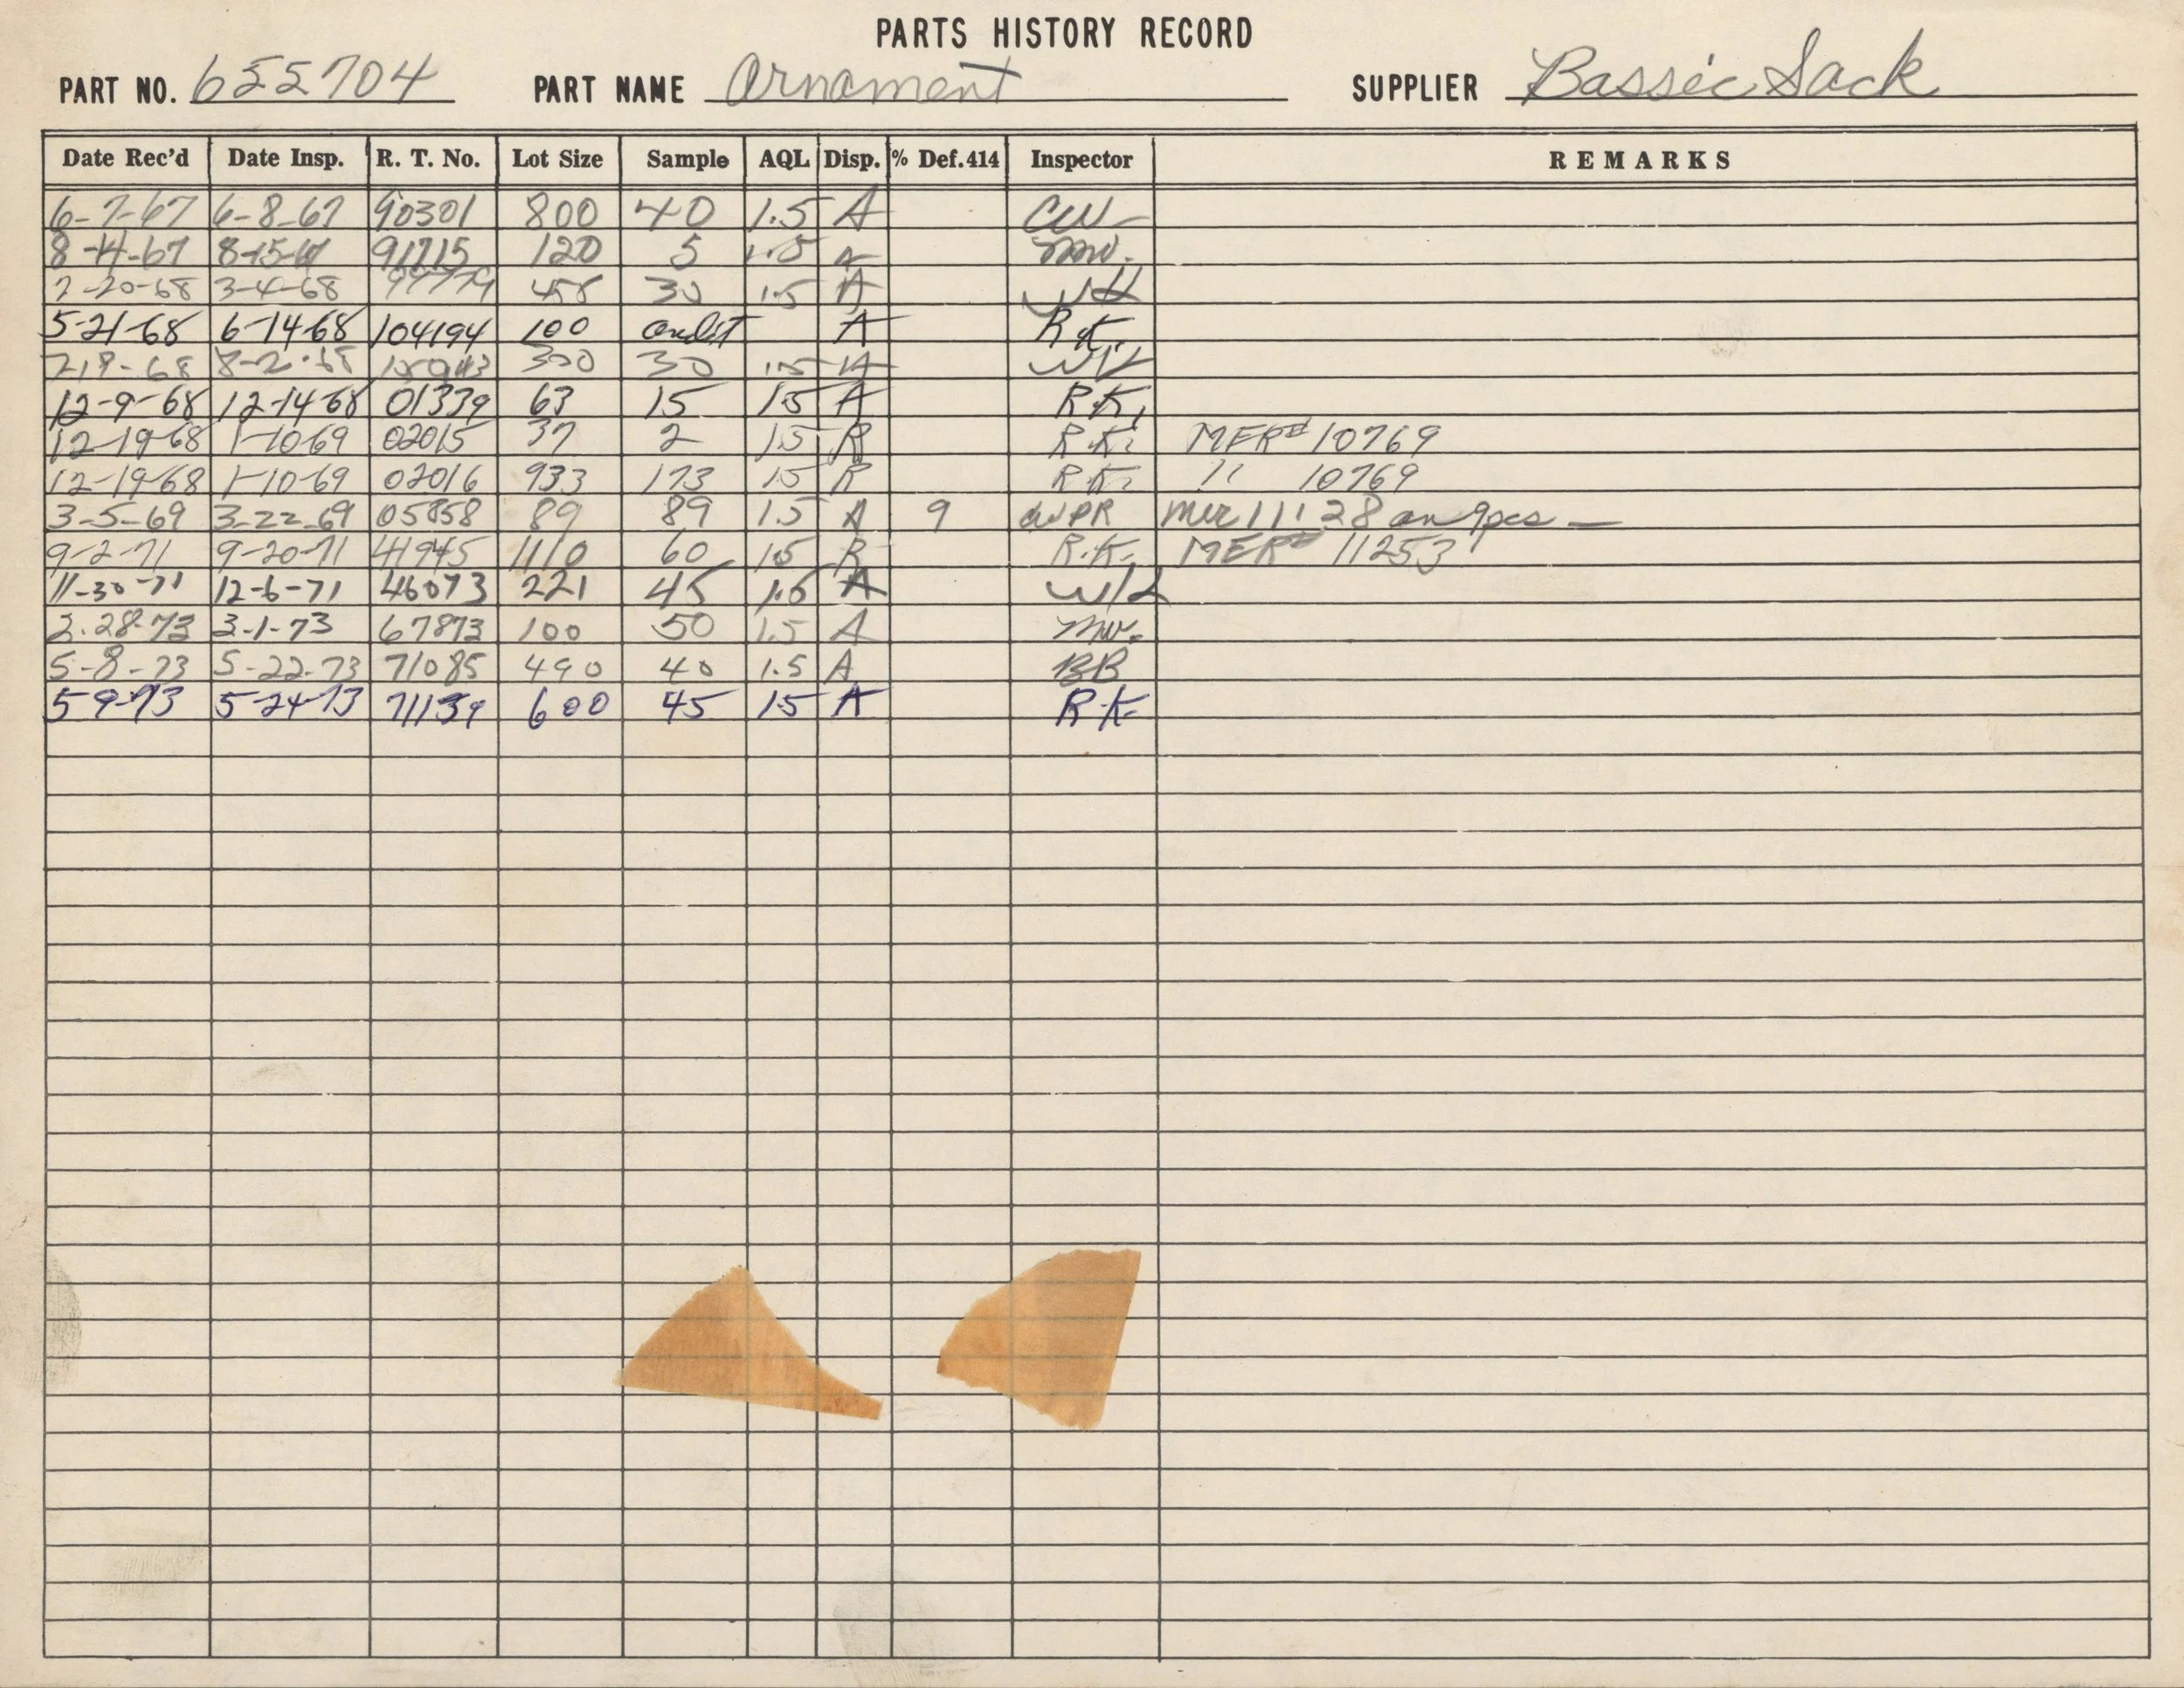 PARTS HISTORY RECORD
PART NO. 655704 PART NAME Ornament SUPPLIER Bassic Sack
Date Rec'd Date Insp. R. T. No. Lot Size Sample AQL Disp. % Def.414 Inspector REMARKS
6-7-67 6-8-67 90301 800 40 1.5 A CW
8-14-67 8-15-67 91715 120 5 1.5 A mw.
2-20-68 3-4-68 99779 458 30 1.5 A
5-21-68 6-14-68 104194 100 audit A R.K.
8-2-68 300 30 1.5 A
12-9-68 12-14-68 01339 63 15 15 A R.K.
12-19-68 1-10-69 02015 37 2 15 R R.K. MER# 10769
12-19-68 1-10-69 02016 933 173 15 R R.K. " 10769
3-5-69 3-22-69 05858 89 89 1.5 A 9 WPR mer 11128 on 9pcs —
9-2-71 9-20-71 41945 1110 60 15 R R.K. MER# 11253
11-30-71 12-6-71 46073 221 45 1.5 A
2.28-73 3-1-73 67873 100 50 1.5 A mw.
5-8-73 5-22-73 71085 490 40 1.5 A BB
5-9-73 5-24-73 71139 600 45 15 A R.K.